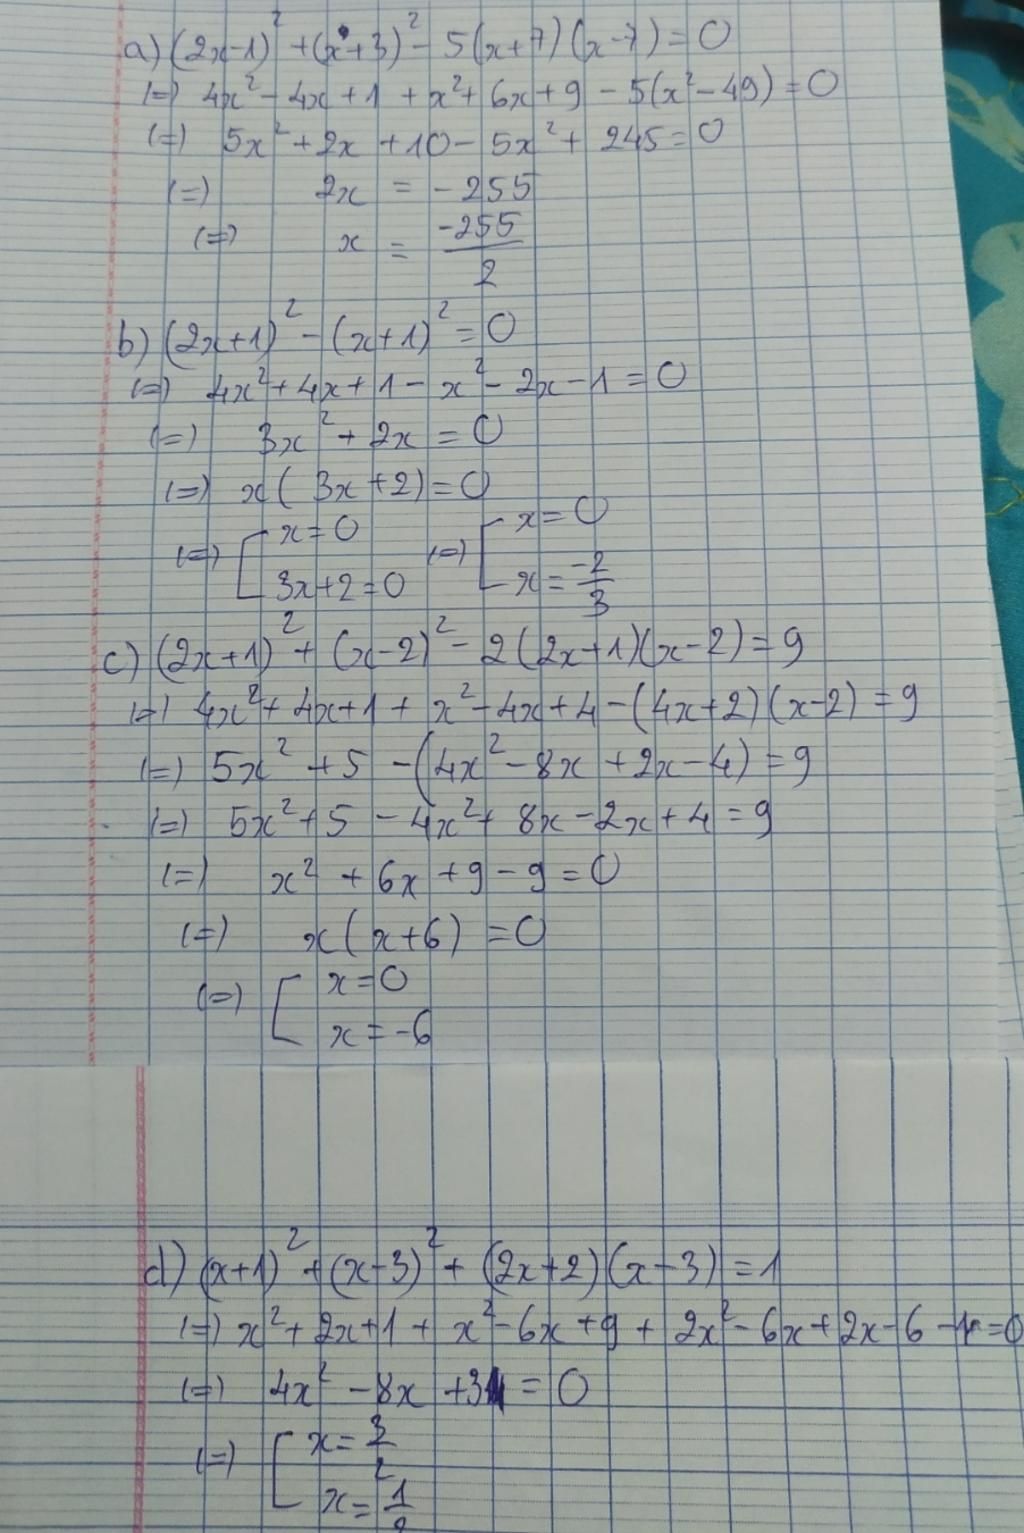 a) (2x-1)² + (x+3)² - 5(x+7)(x-7) = 0
(=) 4x² - 4x + 1 + x² + 6x + 9 - 5(x² - 49) = 0
(=) 5x² + 2x + 10 - 5x² + 245 = 0
(=) 2x = -255
(=) x = -255/2
b) (2x+1)² - (x+1)² = 0
(=) 4x² + 4x + 1 - x² - 2x - 1 = 0
(=) 3x² + 2x = 0
(=) x(3x+2) = 0
(=) [ x = 0 (=) [ x = 0
3x+2 = 0 x = -2/3
c) (2x+1)² + (x-2)² - 2(2x+1)(x-2) = 9
(=) 4x² + 4x + 1 + x² - 4x + 4 - (4x+2)(x-2) = 9
(=) 5x² + 5 - (4x² - 8x + 2x - 4) = 9
(=) 5x² + 5 - 4x² + 8x - 2x + 4 = 9
(=) x² + 6x + 9 - 9 = 0
(=) x(x+6) = 0
(=) [ x = 0
x = -6
d) (x+1)² + (x-3)² + (2x+2)(x-3) = 1
(=) x² + 2x + 1 + x² - 6x + 9 + 2x² - 6x + 2x - 6 - 1 = 0
(=) 4x² - 8x + 3 = 0
(=) [ x = 3/2
x = 1/2